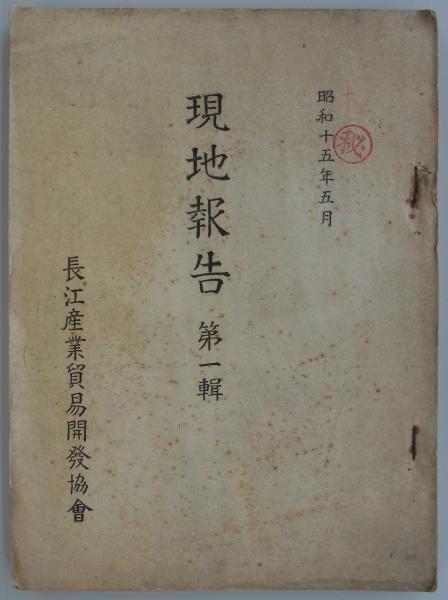 昭和十五年五月
秘
現地報告 第一輯
長江産業貿易開發協會